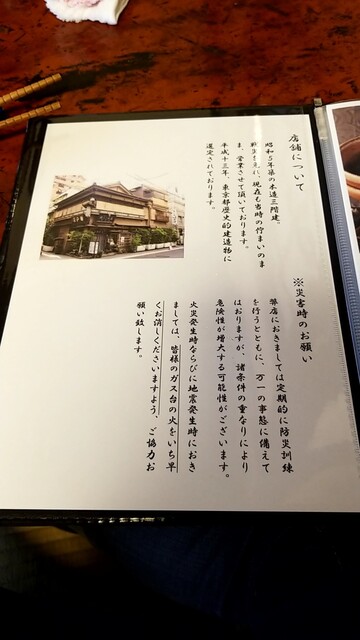 店舗について
昭和5年築の木造三階建。
戦災を免れ、現在も当時の佇まいのま
ま、営業させて頂いております。
平成十三年、東京都歴史的建造物に
選定されております。
※災害時のお願い
弊店におきましては定期的に防災訓練
を行うとともに、万一の事態に備えて
はおりますが、諸条件の重なりにより
危険性が増大する可能性がございます。
火災発生時ならびに地震発生時におき
ましては、皆様のガス台の火をいち早
くお消しくださいますよう、ご協力お
願い致します。